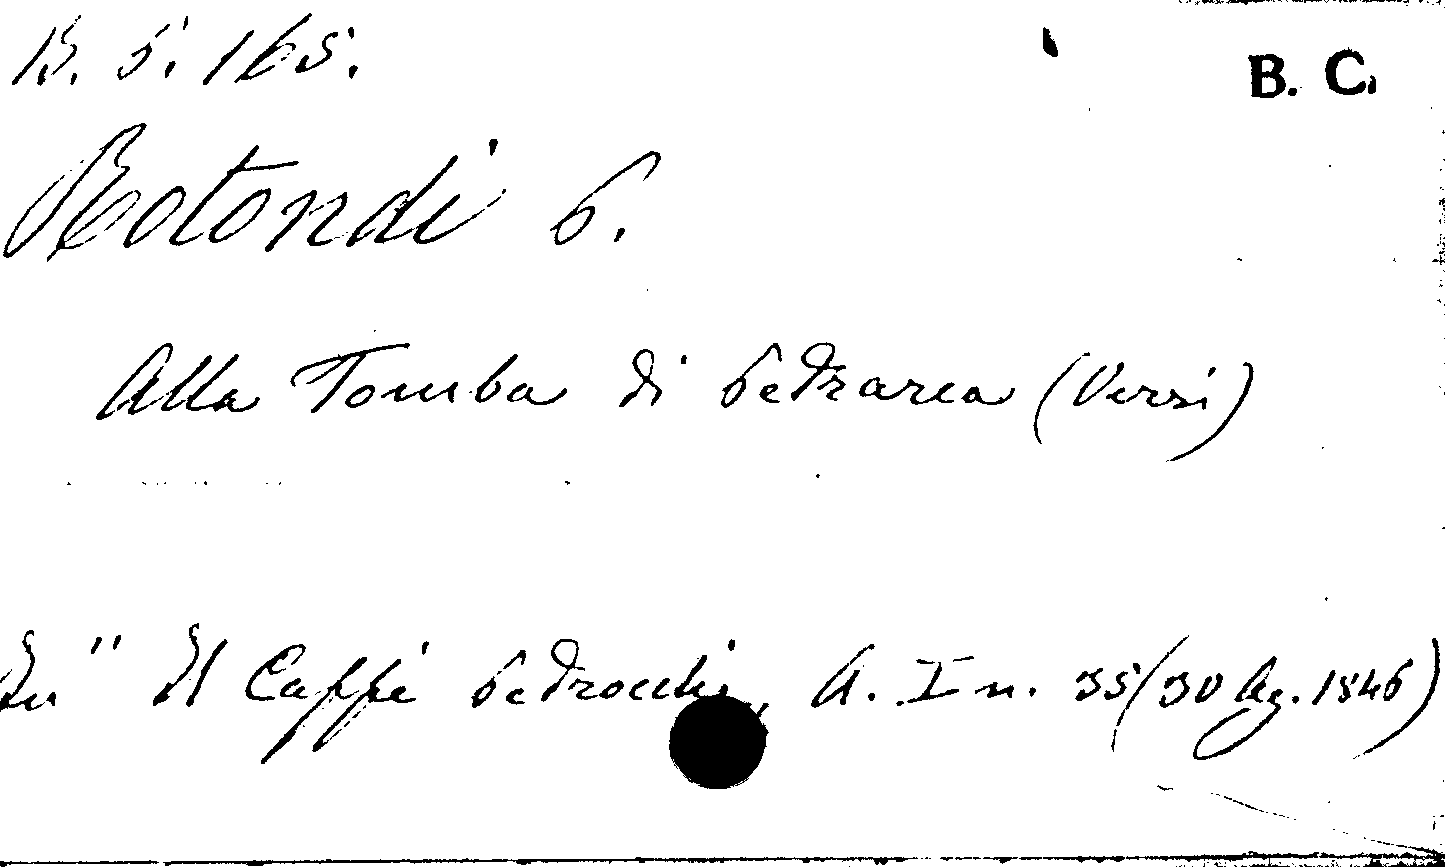 B. 5. 165.
B. C.
Rotondi P.
Alla Tomba di Petrarca (Versi)
In "Il Caffè Pedrocchi„ A. I n. 35 (30 Ag. 1846)